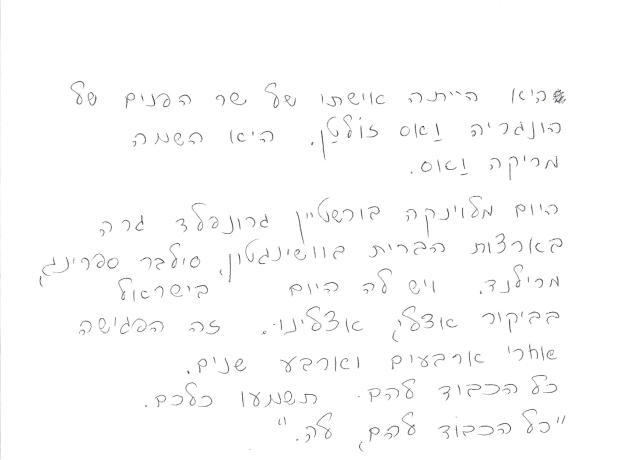 היא הייתה אישתו של שר הפנים של
הונגריה וַאס זוֹלטַן. היא השמה
מריקה וַאס.
היום מלוינקה בורשטיין גרונפלד גרה
בארצות הברית בוושינגטון, סילבר ספרינג,
מרילנד. ויש לה היום בישראל
בביקור אצלי, אצלינו. זה הפגישה
אחרי ארבעים וארבע שנים.
כל הכבוד להם. תשמעו כלכם.
"כל הכבוד להם, לה."